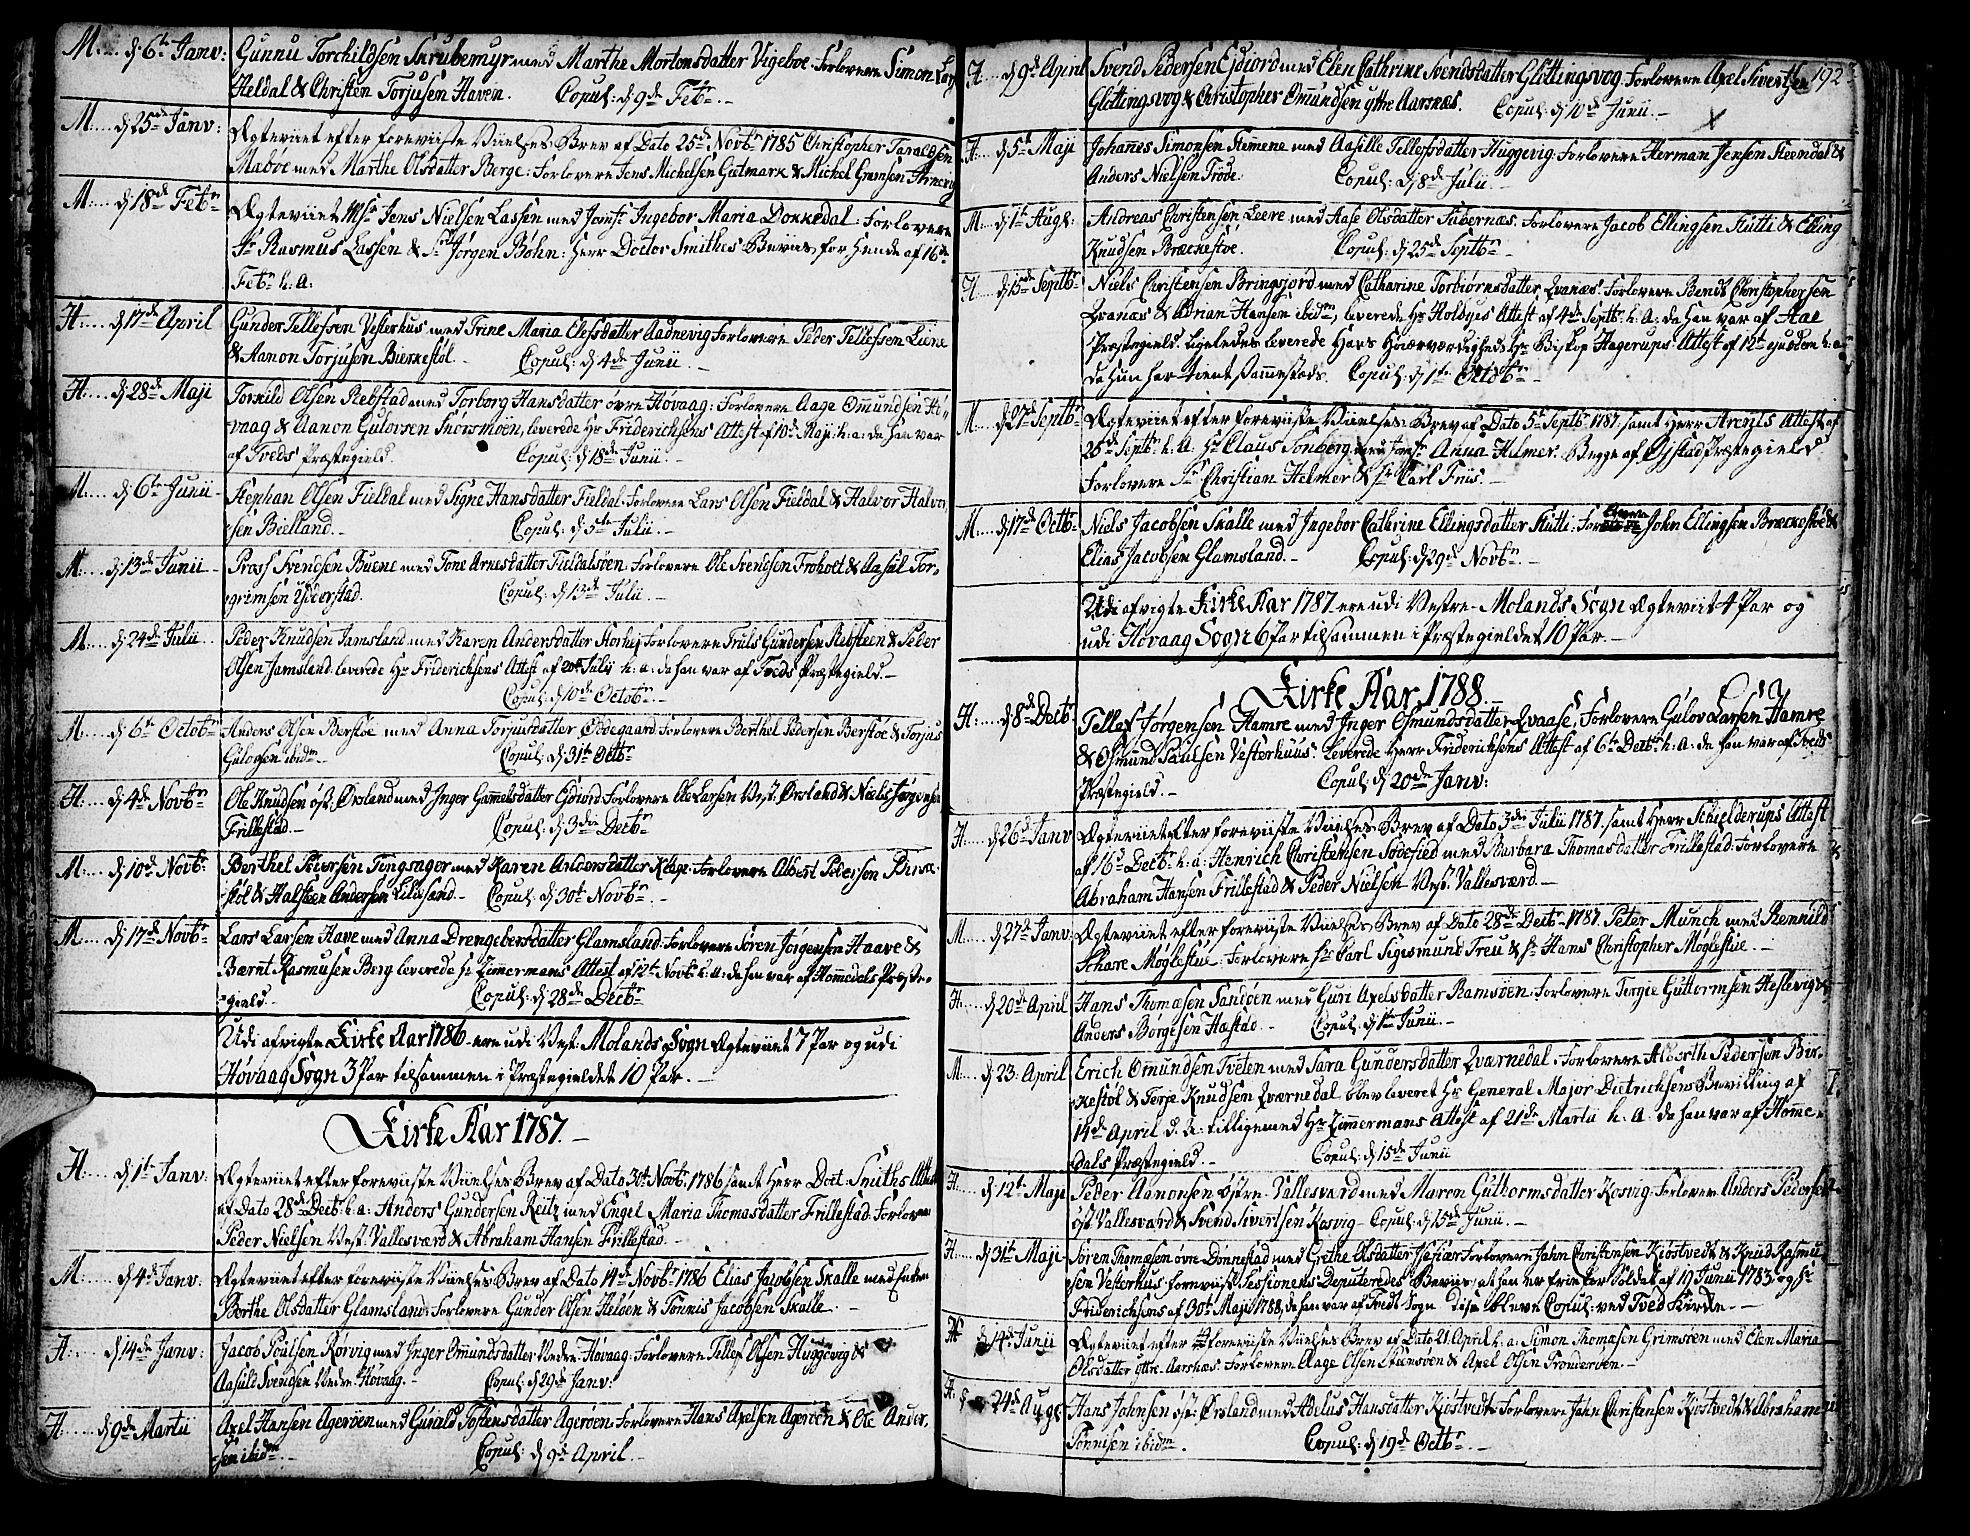 M.... d: 6te Janv: Gunnu Torchildsen Snrubemyr med Marthe Mortonsdatter Vigeboe. Forlovere Simon
Heldal & Christen Torjusen Haven. Copul: d: 9de Febr.
M.... d: 25de Janv: Ægteviiet efter foreviiste Viielses Brev af Dato 25de Novbr 1785 Christopher Taraldsen
Maboe med Marthe Olsdatter Berge: Forlovere Jens Michelsen Gietmark & Michel Gremsen
M.... d: 18de Febr Ægteviiet Msr Jens Nielsen Lassen med Jomfr Ingebor Maria Dokkedal: Forlovere
Sr Rasmus Lassen & Sr Jørgen Bøhn: Herr Doctor Smithes Beviis for hende af 16de
Febr h: a:
H:.... d: 17de April Gunder Tellefsen Vesterhus med Trine Maria Elefsdatter Aadnevig Forlovere Peder Tellefsen Liene
& Aanon Torjusen Bierkestøl. Copul: d: 4de Junii.
H:.... d: 28de Maji Torkild Olsen Rebstad med Torborg Hansdatter øvre Høvaag: Forlovere Aage Omundsen Hø-
vaag & Aanon Gulovsen Snørsmoen, leverede Hr Friderichsens Attest af 10de Maji h: a: da han var
af Tveds Præstegield. Copul: d: 18de Junii.
M.... d: 6te Junii Stephan Olsen Fieldal med Signe Hansdatter Fieldal. Forlovere Lars Olsen Fieldal & Halvor Halvor-
sen Bielland. Copul: d: 5te Julii.
M:... d: 13de Junii Præst Svendsen Buene med Tone Arnesdatter Fieldalsøen. Forlovere Ole Svendsen Froholt & Aasul Tor-
grimsen Ydderstad. Copul: d: 13de Julii.
M.... d: 24de Julii Peder Knudsen Jamsland med Karen Andersdatter Storhej Forlovere Friils Gundersen Rebsteen & Peder
Olsen Jamsland leverede Hr Friderichsens Attest af 20de Julii h: a: da han var af Tveds Præstegield.
Copul: d: 10de Octobr
M.... d: 6te Octobr Anders Olsen Berstøe med Anna Torjusdatter Oddegaard Forlovere Berthel Pedersen Berstøe & Torjus
Gulovsen ibidm Copul: d: 31te Octbr
H:.... d: 4de Novbr Ole Knudsen øst: Ørsland med Inger Gamelsdatter Eidiord Forlovere Ole Larsen Vest: Ørsland & Niels Jørgensen
Frillestad. Copul: d: 3die Decbr
M.... d: 10de Novbr: Berthel Peiersen Tingsager med Karen Andersdatter Klep: Forlovere Albert Pedersen Birke-
støl & Halsteen Andersen Lillesand. Copul: d: 30te Novbr.
M.... d: 17de Novbr Lars Larsen Have med Anna Drengebersdatter Glamsland: Forlovere Søren Jørgensen Haave &
Bærnt Rasmusen Berg leverede Hr Zimmermans Attest af 12te Novbr h: a: da han var af Hommedals Præste-
gield. Copul: d: 28de Decbr
Udi afvigte Kirke Aar 1786 ere udi Vest: Molands Sogn Ægteviiet 7 Par og udi
Høvaag Sogn 3 Par tilsammen i Præstegieldet 10 Par.
Kirke Aar 1787.
H:... d: 1te Janv: Ægteviiet efter foreviiste Viielses Brev af Dato 30te Novbr 1786 samt Herr Doct: Smiths Attest
af Dato 28de Decbr h: a: Anders Gundersen Reitz med Engel Maria Thomasdatter Frillestad: Forlovere
Peder Nielsen Vest: Vallesværd & Abraham Hansen Frillestad.
M.... d: 4de Janv: Ægteviiet efter foreviiste Viielses Brev af Dato 14de Novbr 1786 Elias Jacobsen Skalle med
Berthe Olsdatter Glamsland: Forlovere Gunder Olsen Heløen & Tønnis Jacobsen Skalle.
H.... d: 14de Janv: Jacob Poulsen Rørvig med Inger Omundsdatter Nedre Høvaag: Forlovere Tellef Olsen Huggevig &
Aasuld Svendsen Nedre Høvaag. Copul: d: 29de Janv:
H:.... d: 9de Martii Axel Hansen Ageröen med Gunild Tostensdatter Ageröen: Forlovere Hans Axelsen Ageröen & Ole Ander-
sen ibidm. Copul: d: 9de April.
192
H.... d: 9de April Svend Pedersen Ejdiord med Elen Cathrine Svendsdatter Glottingsvog. Forlovere Axel Sivertsen
Glottingsvog & Christopher Omundsen ytre Aarsnæs. Copul: d: 10de Junii.
H.... d: 5te Maji Johanes Simonsen Stemene med Aasille Tellefsdatter Huggevig. Forlovere Herman Jensen Steendal &
Anders Nielsen Trøde. Copul: d: 8de Julii.
M.... d: 1te Augs: Andreas Christensen Leere med Aase Olsdatter Sabernæs. Forlovere Jacob Ellingsen Stutti & Elling
Knudsen Bræckestøe. Copul: d: 25de Septbr
H.... d: 15de Septbr: Niels Christensen Bringsjord med Catharine Torbiørnsdatter Qvanæs: Forlovere Bendt Christophersen
Qvanæs & Adrian Hansen ibidm, leverede Hr Holbyes Attest af 4de Septbr h: a: da han var af Aae
Præstegield. Ligeledes leverede Hans Høiærværdighed Hr Biskop Hagerups Attest af 12te ejusdem h: a:
da hun har tient sammestæds. Copul: d: 1te Octobr
M.... d: 27de Septbr Ægteviiet efter foreviiste Viielses-Brev af Dato 5te Septbr 1787. samt Herr Arentz Attest af
26de Septbr h. a: Hr Claus Sonberg med Jomfr Anna Helmer. Begge af Øjestad Præstegield
Forlovere Sr Christian Helmer & Sr Carl Friis.
M.... d: 17de Octbr Niels Jacobsen Skalle med Ingebor Cathrine Ellingsdatter Stutti: Forlovere John Ellingsen Bræckestøe &
Elias Jacobsen Glamsland. Copul: d: 29de Novbr.
Udi afvigte Kirke Aar 1787 ere udi Vestre Molands Sogn Ægteviit 4 Par og
udi Høvaag Sogn 6 Par tilsammen i Præstegieldet 10 Par.
Kirke Aar 1788
H:.... d: 8de Decb: Tellef Jørgensen Hamre med Inger Osmundsdatter Qvaase, Forlovere Gulov Larsen Hamre
& Osmund Paulsen Vesterhuus: leverede Herr Friderichsens Attest af 6te Decbr h: a: da han var af Tveds
Præstegield. Copul: d: 20de Janv:
H.... d: 26de Janv Ægteviiet efter foreviiste Viielses-Brev af Dato 3die Julii 1787. samt Herr Schielderups Attest
af 16de Decbr h: a: Henrich Christensen Sødefied med Barbara Thomasdatter Frillestad: Forlovere
Abraham Hansen Frillestad & Peder Nielsen Vest: Vallesværd.
M.... d: 27de Janv: Ægteviiet efter foreviiste Viielses Brev af Dato 28de Decbr 1787. Peter Munch med Remnild
Schare Møglestue: Forlovere Sr Carl Sigismund Treu & Sr Hans Christopher Møglestue.
H.... d: 20de April Hans Thomæsen Sandøen med Guri Axelsdatter Ramsøen: Forlovere Tergie Guttormsen Heslevig &
Anders Børgesen Hæstøe. Copul: d: 1te Junii.
M.... d: 23: April Erich Omundsen Tveten med Sara Gundersdatter Qværnedal. Forlovere Alberth Pedersen Bir-
kestøl & Terje Knudsen Qværnedal blev leveret Hr General Major Dietrichsens Bevilling af
14de April d. A: tilligemed Hr Zimmermans Attest af 21de Martii h. A: da han var af Homme-
dals Præstegield. Copul: d: 15de Junii
H.... d: 12te Maji Peder Aanonsen østre Vallesværd med Maren Guttormsdatter Kosvig: Forlovere Anders Pedersen
øst: Vallesværd & Svend Sivertsen Kosvig. Copul: d: 15de Junii.
H.... d: 31te Maji Søren Thomæsen øvre Dønnestad med Grethe Olsdatter Forlovere Jahn Christensen Kiøstvedt & Knud Rasmu-
sen Vesterhus: foreviist Sessionens Deputeredes Beviis, at han er frie for Soldat af 19 Junii 1783. og Hr
Friderichsens af 30te Maji 1788, da han var af Tvedt Sogn. Disse bleve Copul: ved Tved Kirke.
H. d: 14de Junii Ægteviiet efter foreviiste Viielses Brev af Dato 21 April h: a: Simon Thomæsen Grimsøen med Elen Maria
Olsdatter ytre Aarsnæs. Forlovere Aage Olsen Stuensøen & Axel Olsen Tronderøen.
H: d: 24de Augs: Hans Johnsen øst: Ørsland med Adelus Hansdatter Kiøstvedt Forlovere Jahn Christensen Kiøstvedt & Abraham
Tønnisen ibidm. Copul: d: 19de Octbr.